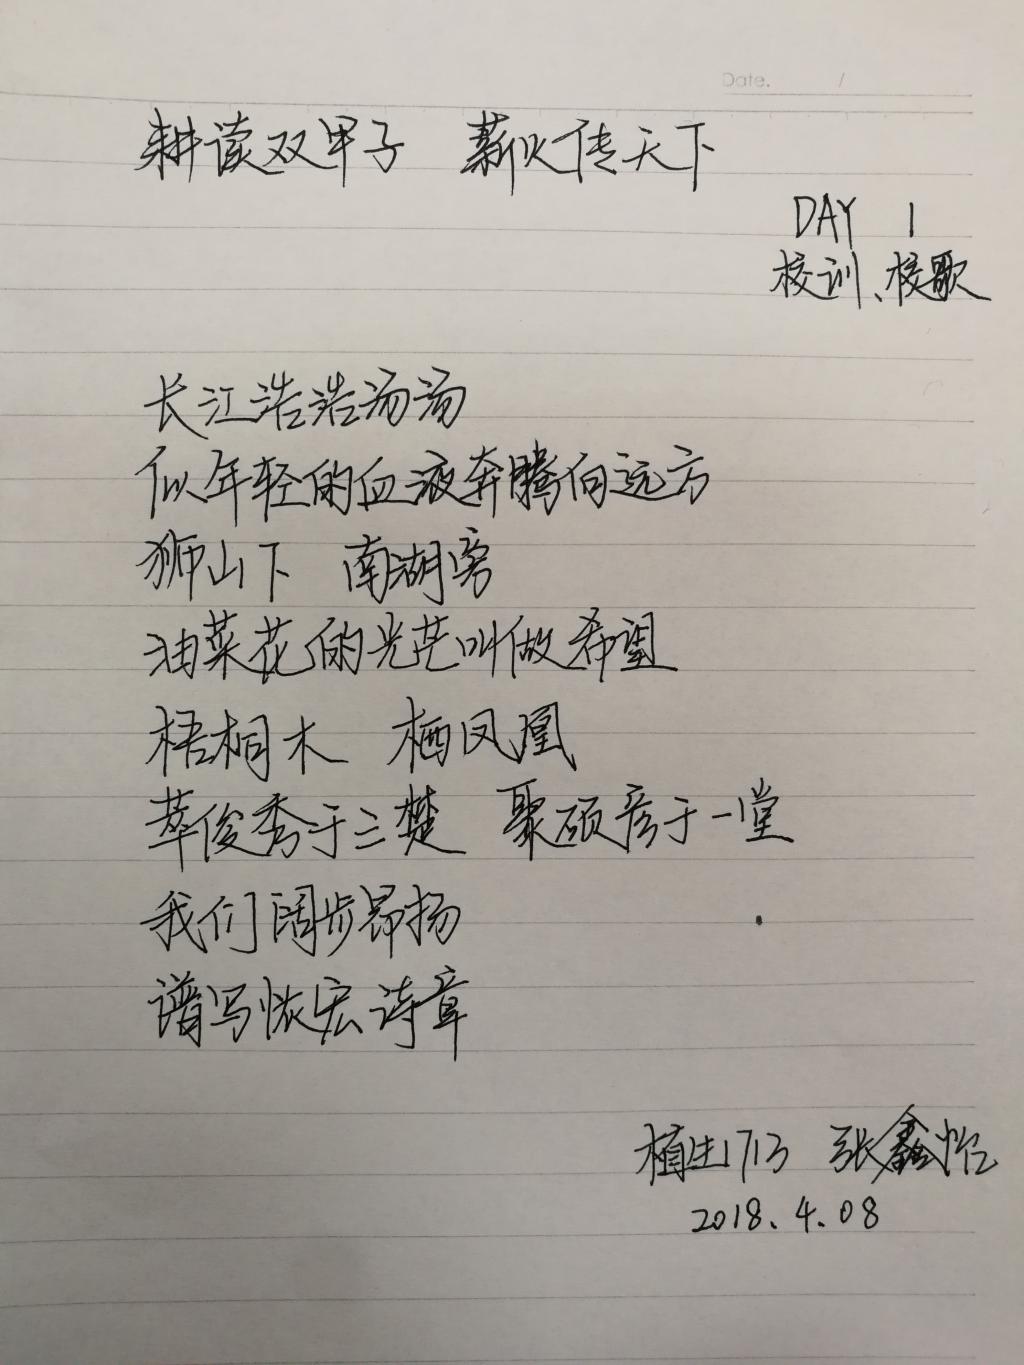 Date. /
耕读双甲子 薪火传天下
DAY 1
校训、校歌
长江浩浩汤汤
似年轻的血液奔腾向远方
狮山下 南湖旁
油菜花的光芒叫做希望
梧桐木 栖凤凰
萃俊秀于三楚 聚硕彦于一堂
我们阔步昂扬
谱写恢宏诗章
植生1713 张鑫怡
2018.4.08